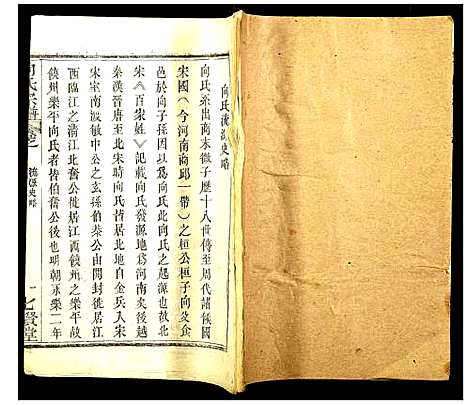 向氏源流史略
向氏系出商末微子歷十八世傳至周代諸侯國
宋國（今河南商邱一帶）之桓公桓子向父食
邑於向子孫因以為向氏此向氏之起源也故北
宋《百家姓》記載向氏發源地為河南後越
秦漢晉唐至北宋時向氏皆居北地自金兵入宋
宋室南渡敏中公之玄孫伯泰公由開封徙居江
西臨江之清江北奮公徙居江西饒州之樂平故
饒州樂平向氏者皆伯奮公後也明朝永樂二年
向氏宗譜
源流史略
一
七賢堂